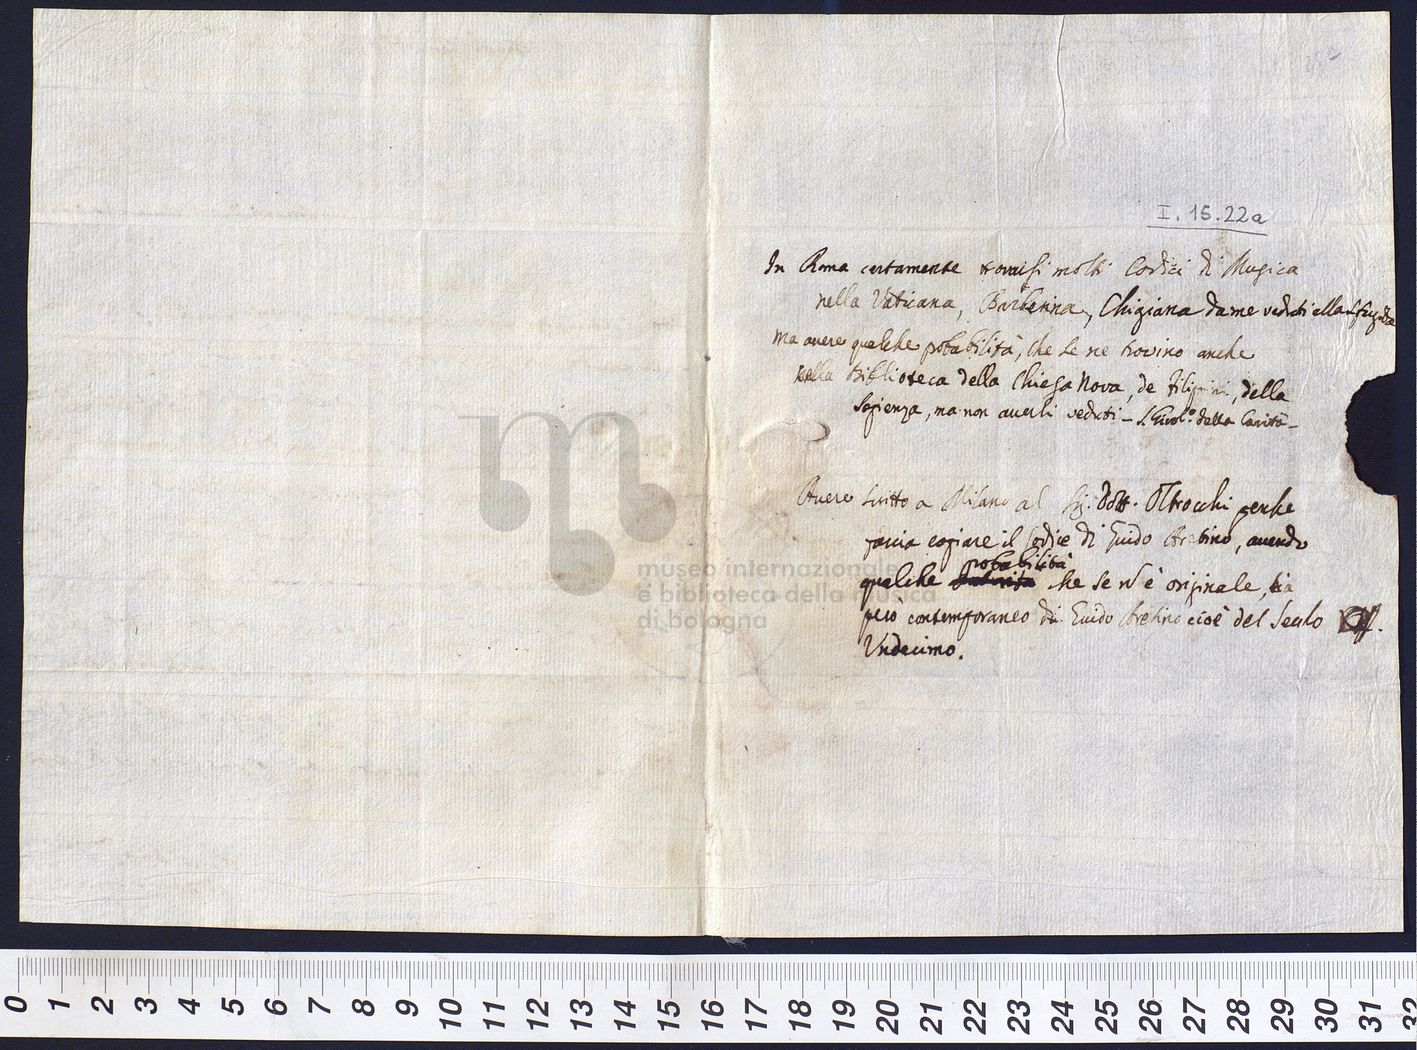 I. 15. 22a
In Roma certamente trovarsi molti Codici di Musica
nella Vaticana, Barberina, Chigiana da me veduti alla sfugita
Ma avere qualche probabilità, che se ne trovino anche
nella Biblioteca della Chiesa Nova, de Filipini, della
Sapienza, ma non averli veduti – S. Girol.º della Carità –
Avere scritto a Milano al Sig. Dott. Oltrocchi perche
faccia copiare il Codice di Guido Aretino, avendo
probabilità
qualche che se n è originale, sia
però contemporaneo di Guido Aretino cioè del Secolo
Undecimo.
museo internazionale
e biblioteca della musica
di bologna
0 1 2 3 4 5 6 7 8 9 10 11 12 13 14 15 16 17 18 19 20 21 22 23 24 25 26 27 28 29 30 31 32